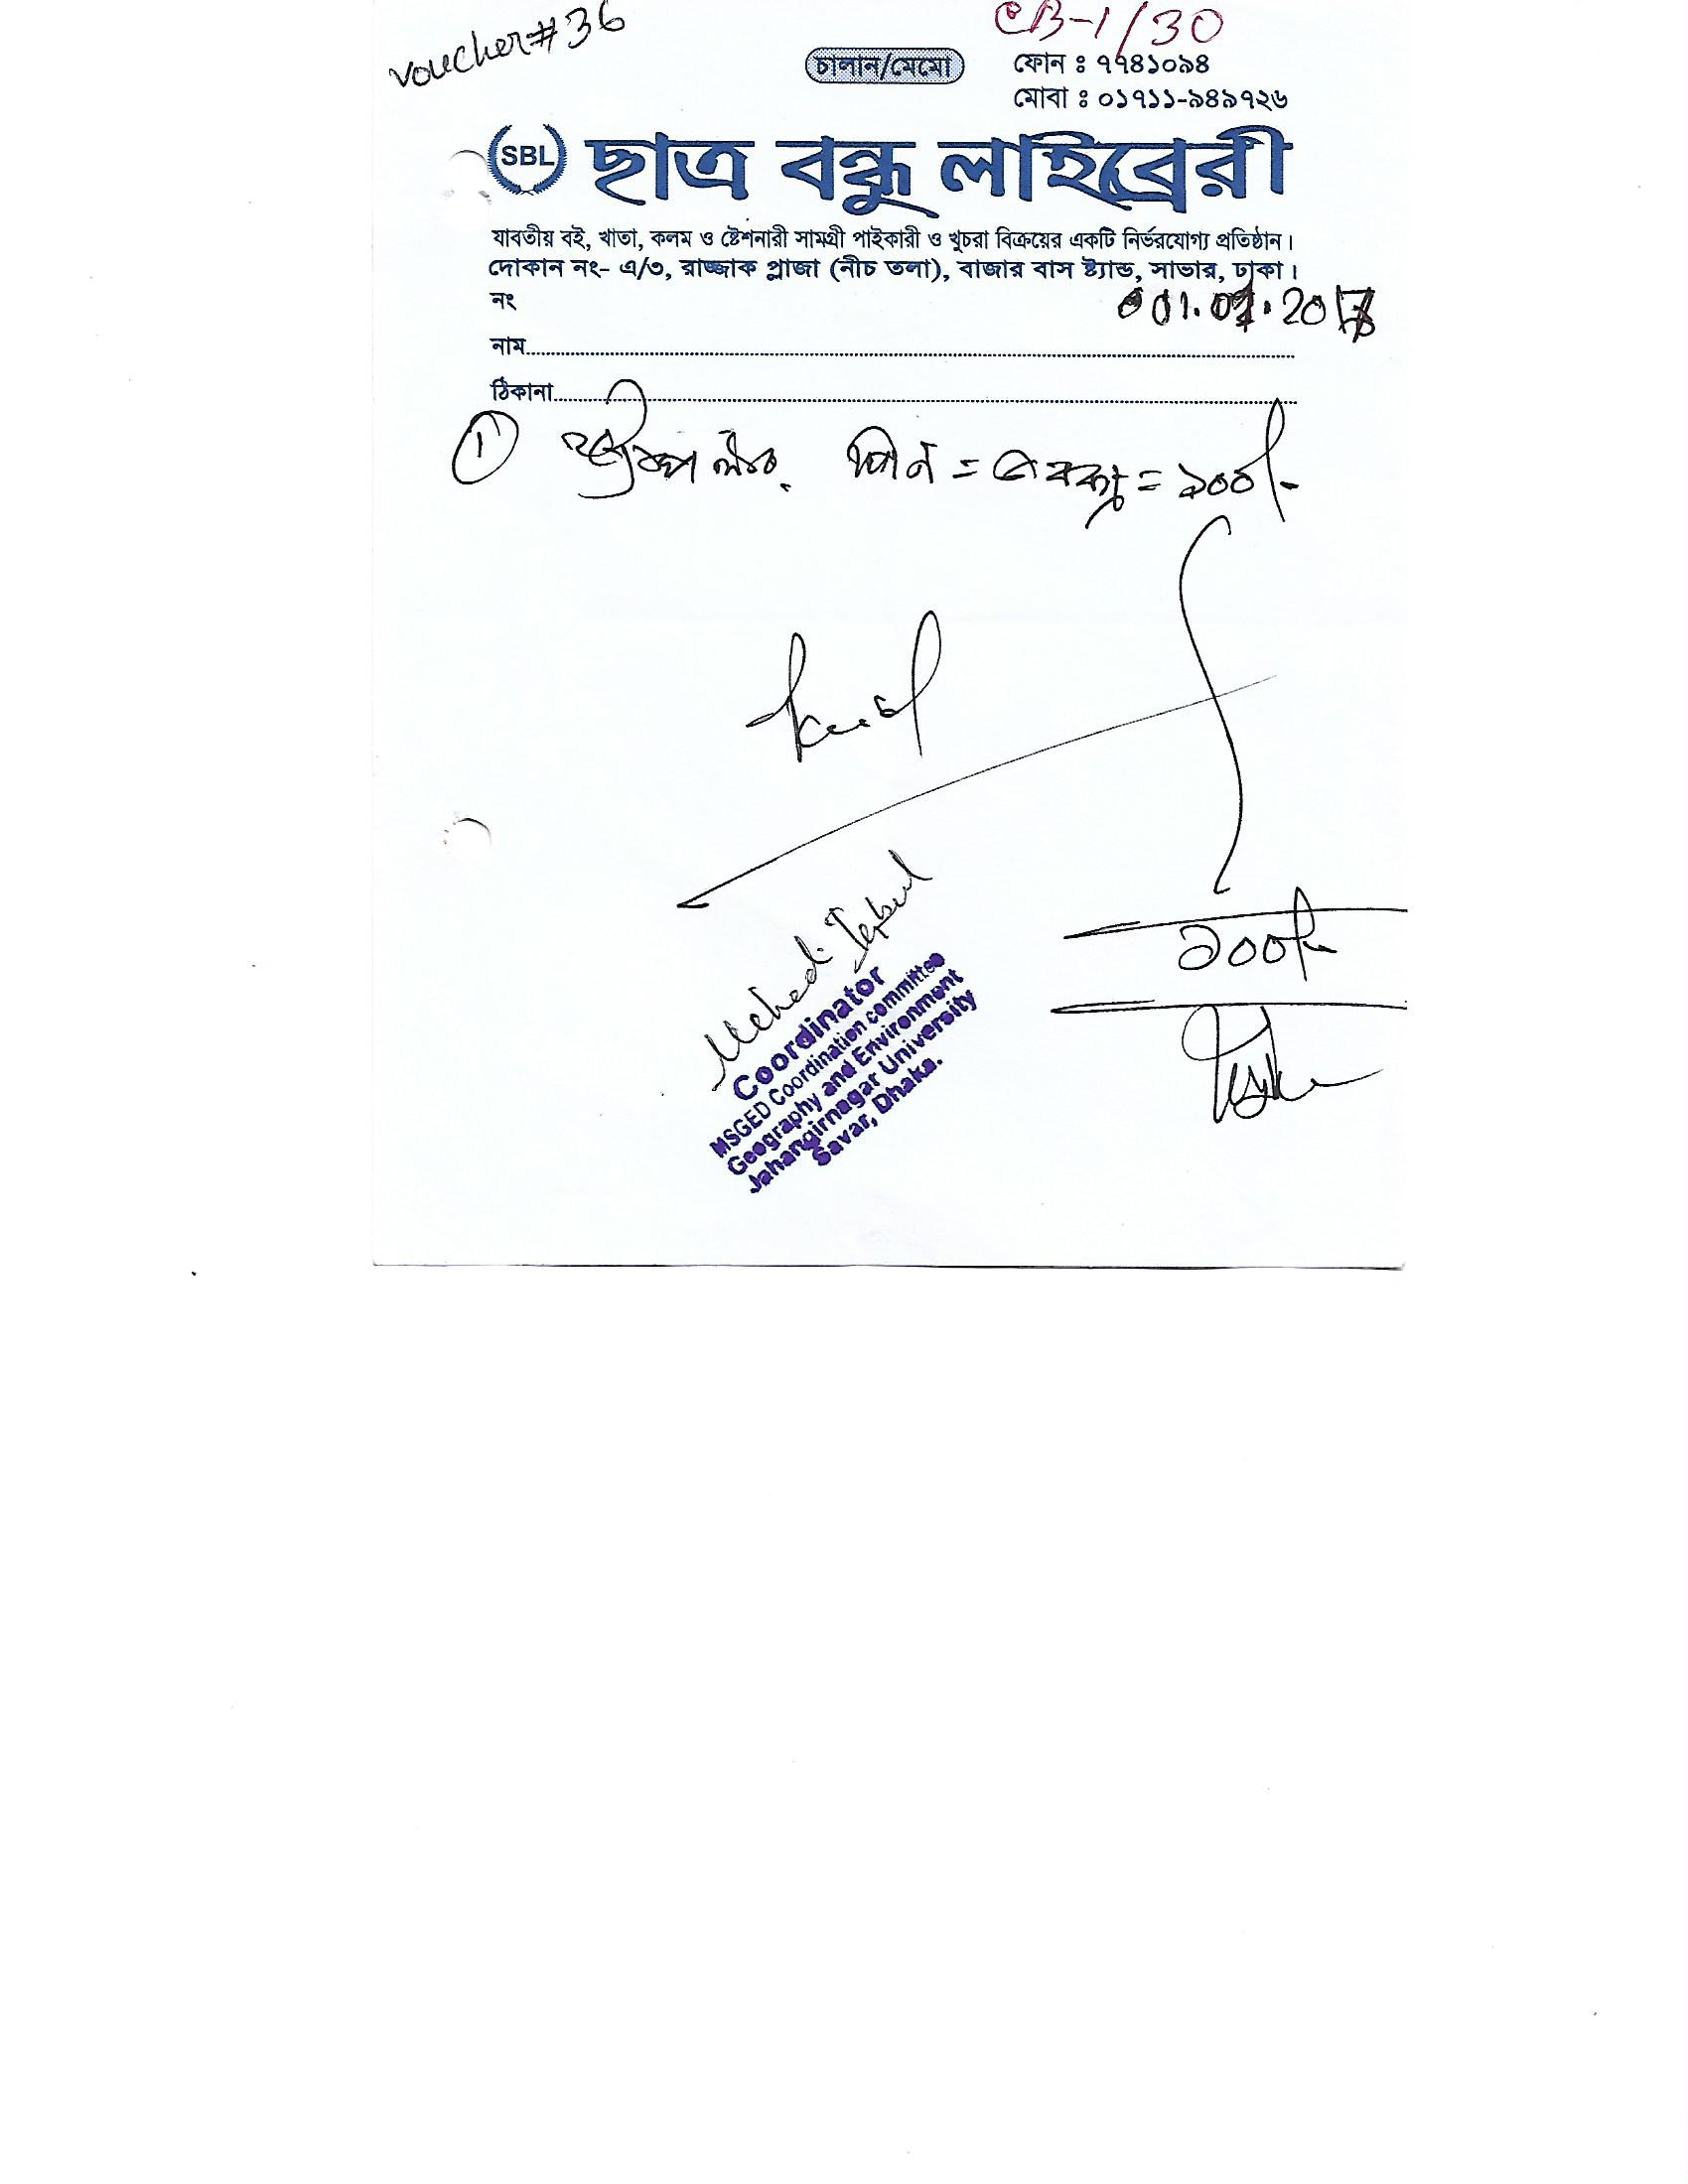 voucher#36
CB-1/30
চালান/মেমো
ফোন ঃ ৭৭৪১০৯৪
মোবা ঃ ০১৭১১-৯৪৯৭২৬
SBL ছাত্র বন্ধু লাইব্রেরী
যাবতীয় বই, খাতা, কলম ও ষ্টেশনারী সামগ্রী পাইকারী ও খুচরা বিক্রয়ের একটি নির্ভরযোগ্য প্রতিষ্ঠান।
দোকান নং- এ/৩, রাজ্জাক প্লাজা (নীচ তলা), বাজার বাস ষ্ট্যান্ড, সাভার, ঢাকা।
নং
নাম
ঠিকানা
① পিন = = ১০০/-
১০০/-
Coordinator
MSGED Coordination committee
Geography and Environment
Jahangirnagar University
Savar, Dhaka.